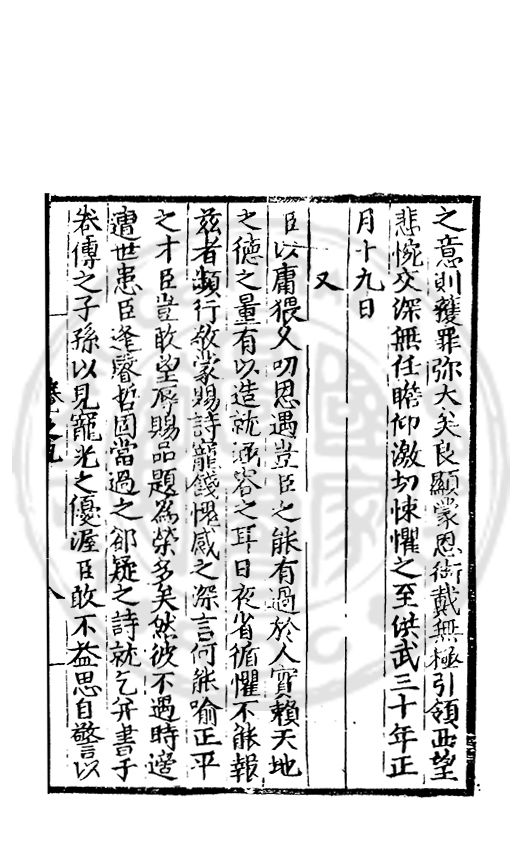 之意則獲罪弥大矣良顯蒙恩銜戴無極引領西望
悲惋交深無任瞻仰激切悚懼之至洪武三十年正
月十九日
又
臣以庸猥久叨恩遇豈臣之能有過於人實賴天地
之德之量有以造就涵容之耳日夜省循懼不能報
兹者頻行敬蒙賜詩寵餞懼感之深言何能喻正平
之才臣豈敢望辱賜品題為榮多矣然彼不遇時遭
遭世患臣逢聖哲固當過之卻疑之詩就乞并書于
卷傳之子孫以見寵光之優渥臣敢不益思自警以
卷之九
八